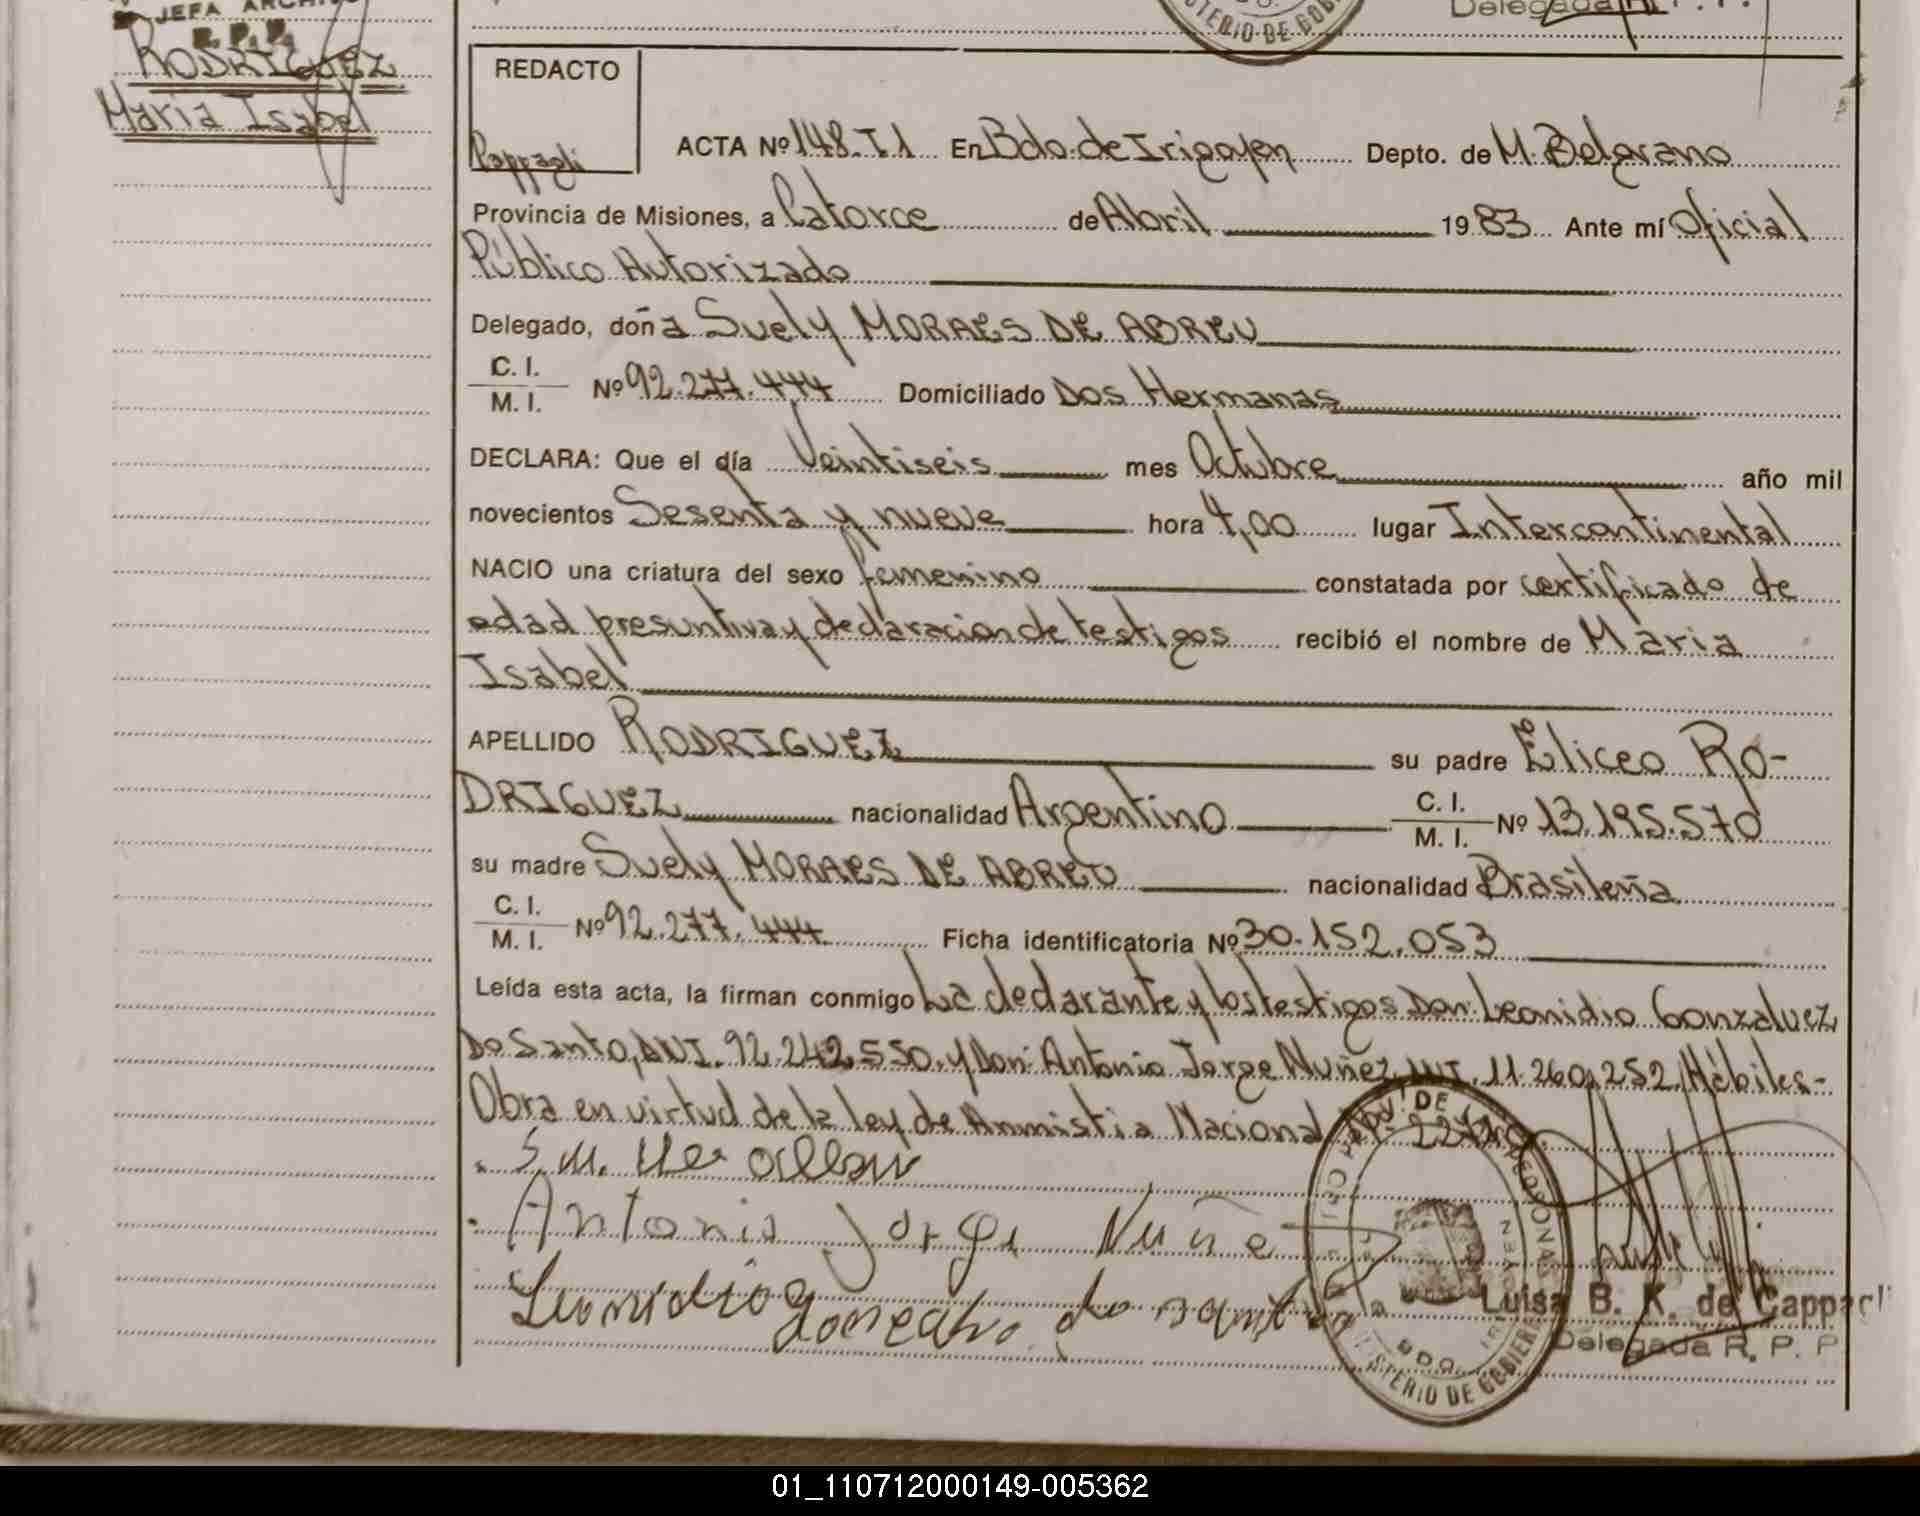 JEFA ARCHIVO
R. P. P.
RODRIGUEZ
Maria Isabel
Delegada R. P. P.
MINISTERIO DE GOB
REDACTO
Cappagli
ACTA Nº 148.T1 En Bdo. de Irigoyen Depto. de M. Belgrano
Provincia de Misiones, a Catorce de Abril 1983 Ante mí Oficial
Público Autorizado
Delegado, doña Suely MORAES DE ABREU
C. I.
M. I. Nº 92.277.444 Domiciliado Dos Hermanas
DECLARA: Que el día Veintiseis mes Octubre año mil
novecientos Sesenta y nueve hora 4,00 lugar Intercontinental
NACIO una criatura del sexo femenino constatada por certificado de
edad presuntiva y declaracion de testigos recibió el nombre de Maria
Isabel
APELLIDO RODRIGUEZ su padre Eliceo RO-
DRIGUEZ nacionalidad Argentino C. I.
M. I. Nº 13.195.570
su madre Suely MORAES DE ABREU nacionalidad Brasileña
C. I.
M. I. Nº 92.277.444 Ficha identificatoria Nº 30.152.053
Leída esta acta, la firman conmigo La declarante y los testigos Don: Leonidio Gonzalvez
Do Santo, DNI. 92.242.550. y Don: Antonio Jorge Nuñez MI. 11.260.252. Hábiles-
Obra en virtud de la ley de Anmistia Nacional Nº
S. M.
Antonio Jorge Nuñez
Leonidio Gonzalvo do santo
DE LAS PERSONAS
MINISTERIO DE GOBIERNO
BDO. IRIGOYEN
Luisa B. K. de Cappagli
Delegada R. P. P.
01_110712000149-005362